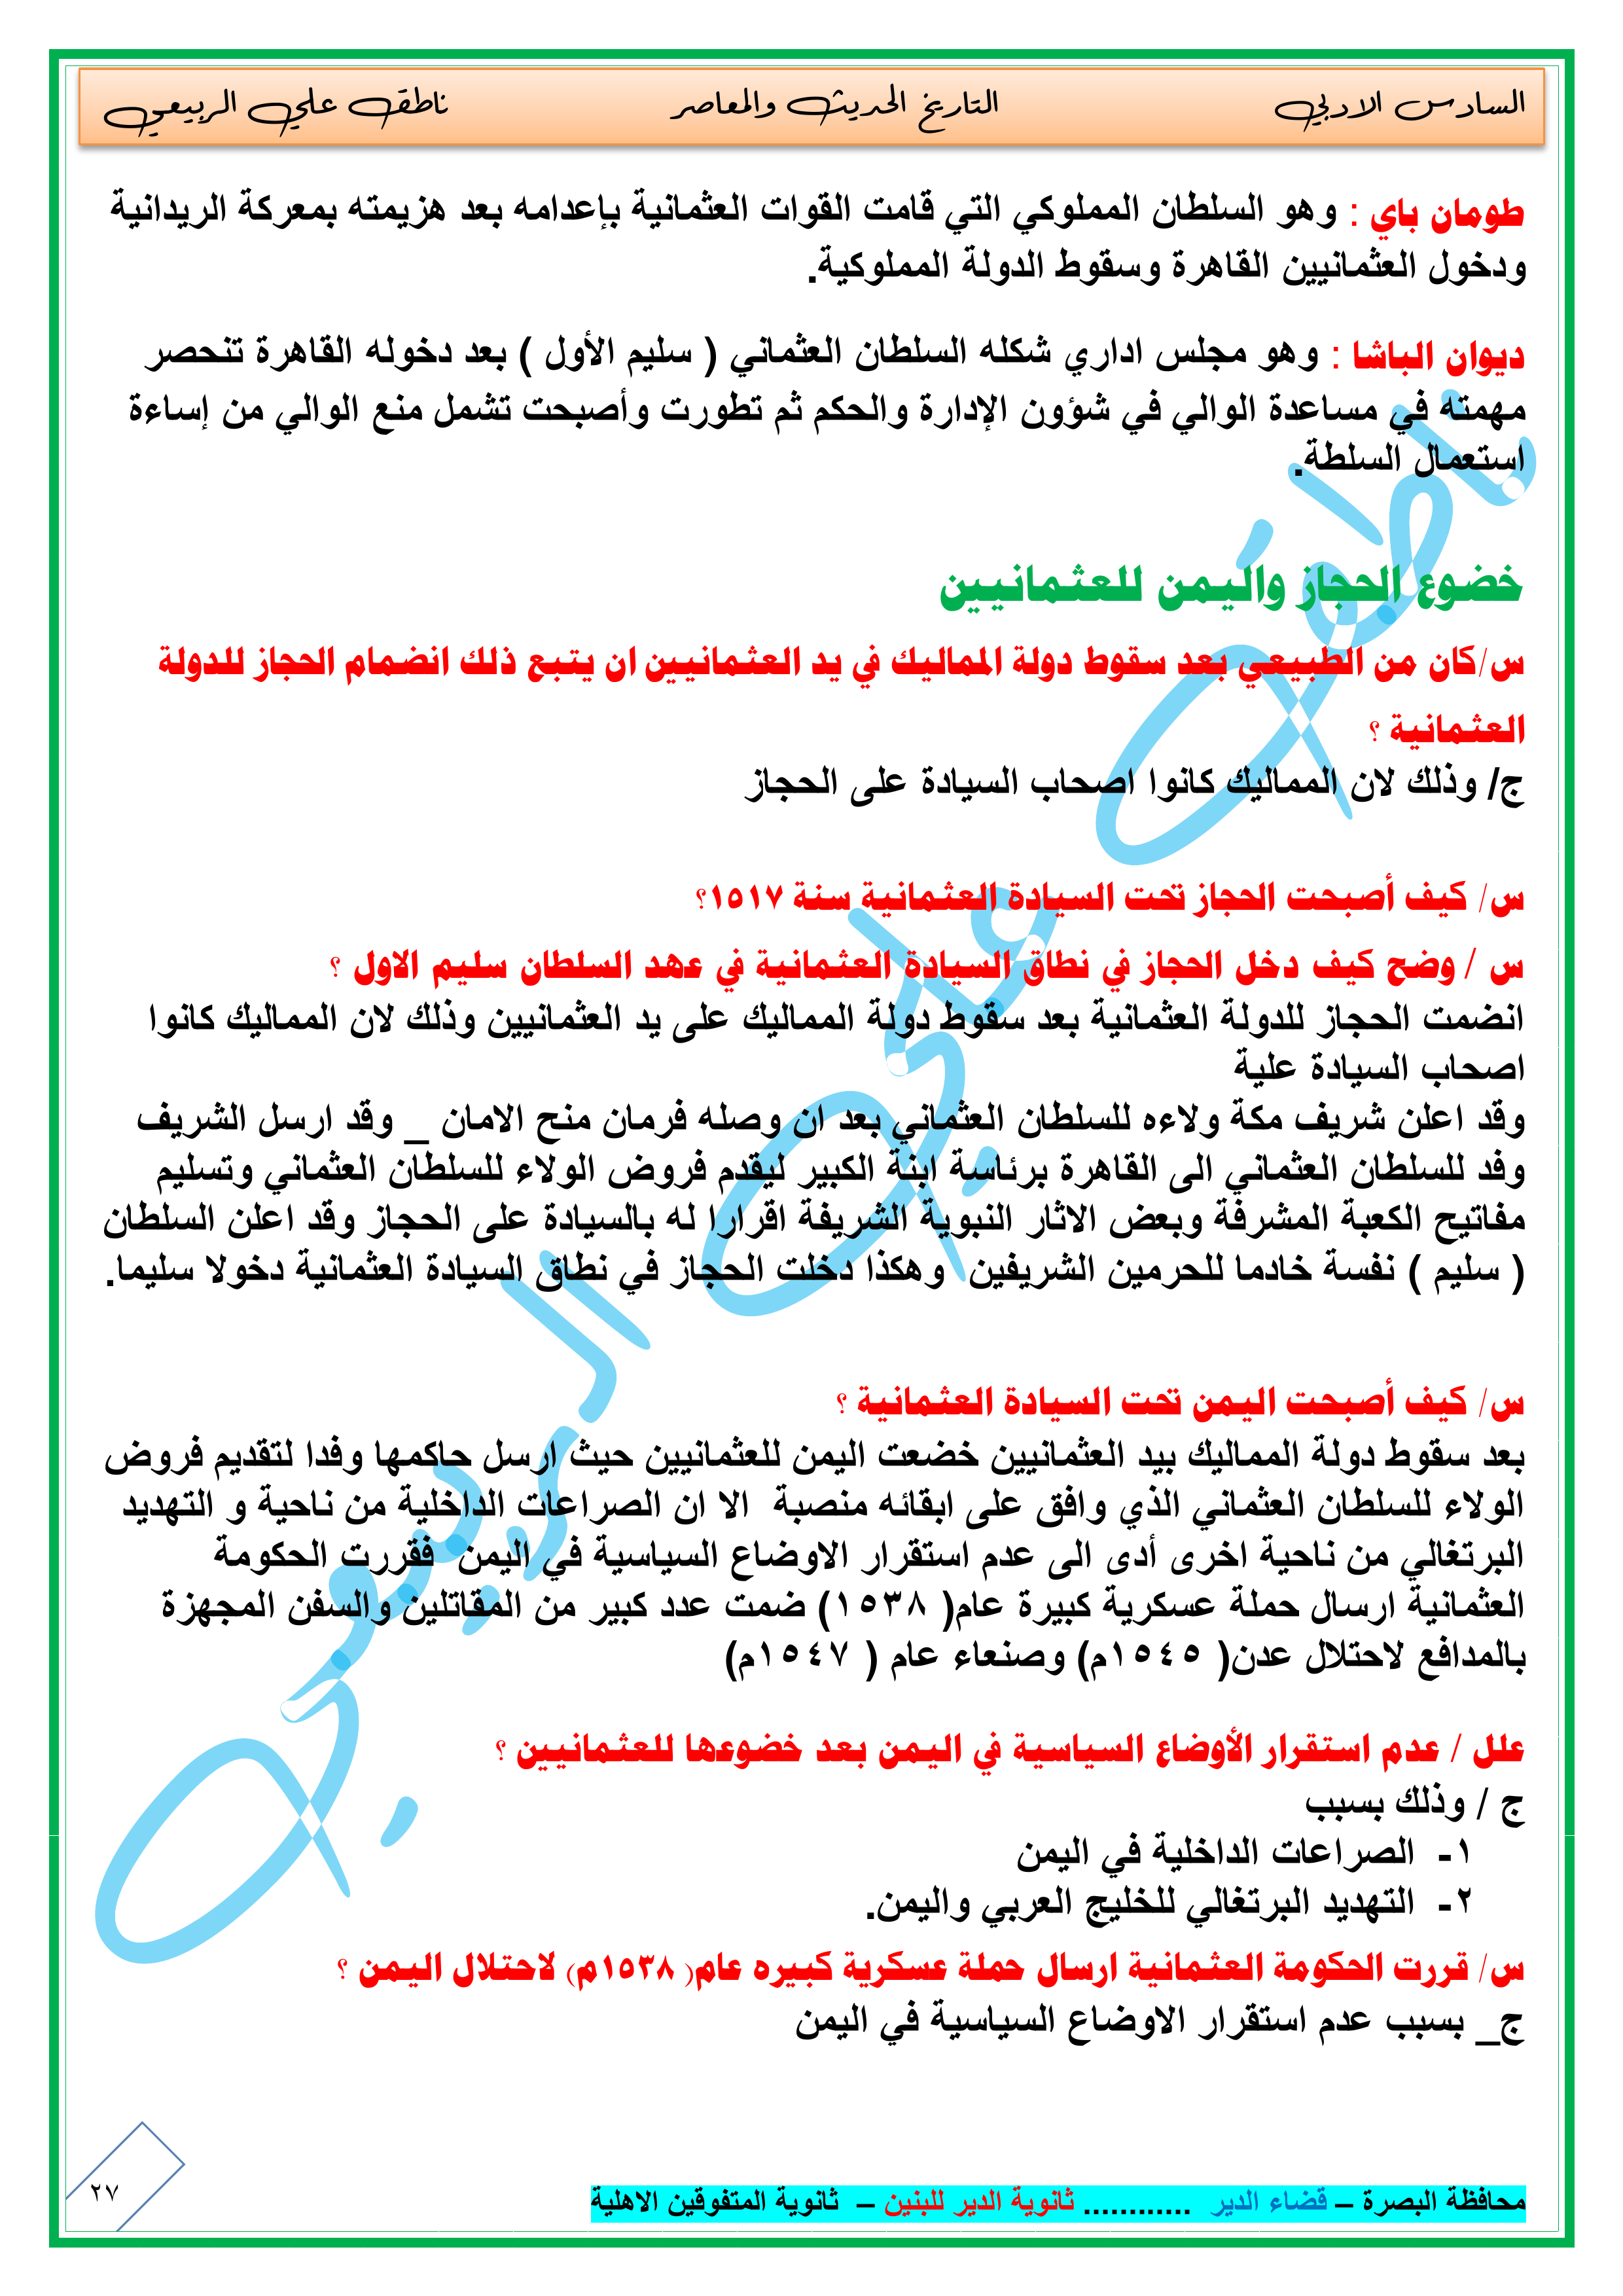 السادس الادبي التاريخ الحديث والمعاصر ناطق علي الربيعي
طومان باي : وهو السلطان المملوكي التي قامت القوات العثمانية بإعدامه بعد هزيمته بمعركة الريدانية
ودخول العثمانيين القاهرة وسقوط الدولة المملوكية.
ديوان الباشا : وهو مجلس اداري شكله السلطان العثماني ( سليم الأول ) بعد دخوله القاهرة تنحصر
مهمته في مساعدة الوالي في شؤون الإدارة والحكم ثم تطورت وأصبحت تشمل منع الوالي من إساءة
استعمال السلطة.
خضوع الحجاز واليمن للعثمانيين
س/كان من الطبيعي بعد سقوط دولة المماليك في يد العثمانيين ان يتبع ذلك انضمام الحجاز للدولة
العثمانية ؟
ج/ وذلك لان المماليك كانوا اصحاب السيادة على الحجاز
س/ كيف أصبحت الحجاز تحت السيادة العثمانية سنة ١٥١٧؟
س / وضح كيف دخل الحجاز في نطاق السيادة العثمانية في عهد السلطان سليم الاول ؟
انضمت الحجاز للدولة العثمانية بعد سقوط دولة المماليك على يد العثمانيين وذلك لان المماليك كانوا
اصحاب السيادة علية
وقد اعلن شريف مكة ولاءه للسلطان العثماني بعد ان وصله فرمان منح الامان _ وقد ارسل الشريف
وفد للسلطان العثماني الى القاهرة برئاسة ابنة الكبير ليقدم فروض الولاء للسلطان العثماني وتسليم
مفاتيح الكعبة المشرفة وبعض الاثار النبوية الشريفة اقرارا له بالسيادة على الحجاز وقد اعلن السلطان
( سليم ) نفسة خادما للحرمين الشريفين وهكذا دخلت الحجاز في نطاق السيادة العثمانية دخولا سليما.
س/ كيف أصبحت اليمن تحت السيادة العثمانية ؟
بعد سقوط دولة المماليك بيد العثمانيين خضعت اليمن للعثمانيين حيث ارسل حاكمها وفدا لتقديم فروض
الولاء للسلطان العثماني الذي وافق على ابقائه منصبة الا ان الصراعات الداخلية من ناحية و التهديد
البرتغالي من ناحية اخرى أدى الى عدم استقرار الاوضاع السياسية في اليمن فقررت الحكومة
العثمانية ارسال حملة عسكرية كبيرة عام( ١٥٣٨) ضمت عدد كبير من المقاتلين والسفن المجهزة
بالمدافع لاحتلال عدن( ١٥٤٥م) وصنعاء عام ( ١٥٤٧م)
علل / عدم استقرار الأوضاع السياسية في اليمن بعد خضوعها للعثمانيين ؟
ج / وذلك بسبب
١- الصراعات الداخلية في اليمن
٢- التهديد البرتغالي للخليج العربي واليمن.
س/ قررت الحكومة العثمانية ارسال حملة عسكرية كبيره عام( ١٥٣٨م) لاحتلال اليمن ؟
ج_ بسبب عدم استقرار الاوضاع السياسية في اليمن
محافظة البصرة – قضاء الدير ............ ثانوية الدير للبنين – ثانوية المتفوقين الاهلية
٢٧
ناطق علي الربيعي